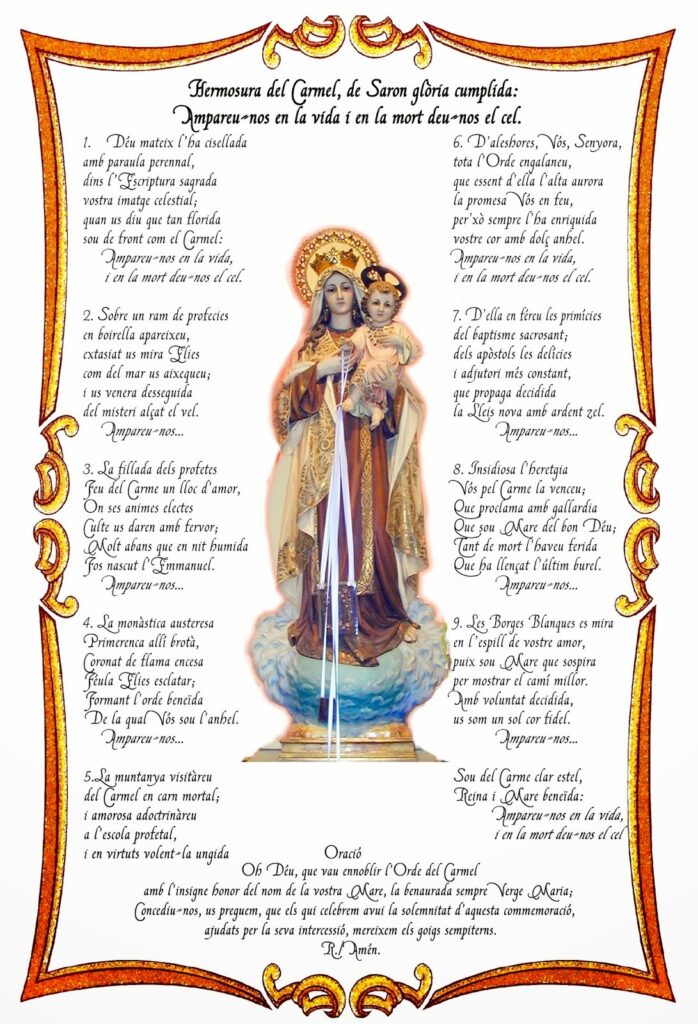 Hermosura del Carmel, de Saron glòria cumplida:
Ampareu-nos en la vida i en la mort deu-nos el cel.
1. Déu mateix l'ha cisellada
amb paraula perennal,
dins l'Escriptura sagrada
vostra imatge celestial;
quan us diu que tan florida
sou de front com el Carmel:
Ampareu-nos en la vida,
i en la mort deu-nos el cel.
2. Sobre un ram de profecies
en boirella apareixeu,
extasiat us mira Elies
com del mar us aixequeu;
i us venera desseguida
del misteri alçat el vel.
Ampareu-nos...
3. La fillada dels profetes
Feu del Carme un lloc d'amor,
On ses animes electes
Culte us daren amb fervor;
Molt abans que en nit humida
Fos nascut l'Emmanuel.
Ampareu-nos...
4. La monàstica austeresa
Primerenca allí brotà,
Coronat de flama encesa
Féula Elies esclatar;
Formant l'orde beneïda
De la qual Vós sou l'anhel.
Ampareu-nos...
5.La muntanya visitàreu
del Carmel en carn mortal;
i amorosa adoctrinàreu
a l'escola profetal,
i en virtuts volent-la ungida
6. D'aleshores, Vós, Senyora,
tota l'Orde engalaneu,
que essent d'ella l'alta aurora
la promesa Vós en feu,
per'xò sempre l'ha enriquida
vostre cor amb dolç anhel.
Ampareu-nos en la vida,
i en la mort deu-nos el cel.
7. D'ella en féreu les primícies
del baptisme sacrosant;
dels apòstols les delícies
i adjutori més constant,
que propaga decidida
la Lleis nova amb ardent zel.
Ampareu-nos...
8. Insidiosa l'heretgia
Vós pel Carme la venceu;
Que proclama amb gallardia
Que sou Mare del bon Déu;
Tant de mort l'haveu ferida
Que ha llençat l'últim burel.
Ampareu-nos...
9. Les Borges Blanques es mira
en l'espill de vostre amor,
puix sou Mare que sospira
per mostrar el camí millor.
Amb voluntat decidida,
us som un sol cor fidel.
Ampareu-nos...
Sou del Carme clar estel,
Reina i Mare beneïda:
Ampareu-nos en la vida,
i en la mort deu-nos el cel
Oració
Oh Déu, que vau ennoblir l'Orde del Carmel
amb l'insigne honor del nom de la vostra Mare, la benaurada sempre Verge Maria;
Concediu-nos, us preguem, que els qui celebrem avui la solemnitat d'aquesta commemoració,
ajudats per la seva intercessió, mereixem els goigs sempiterns.
R./ Amén.